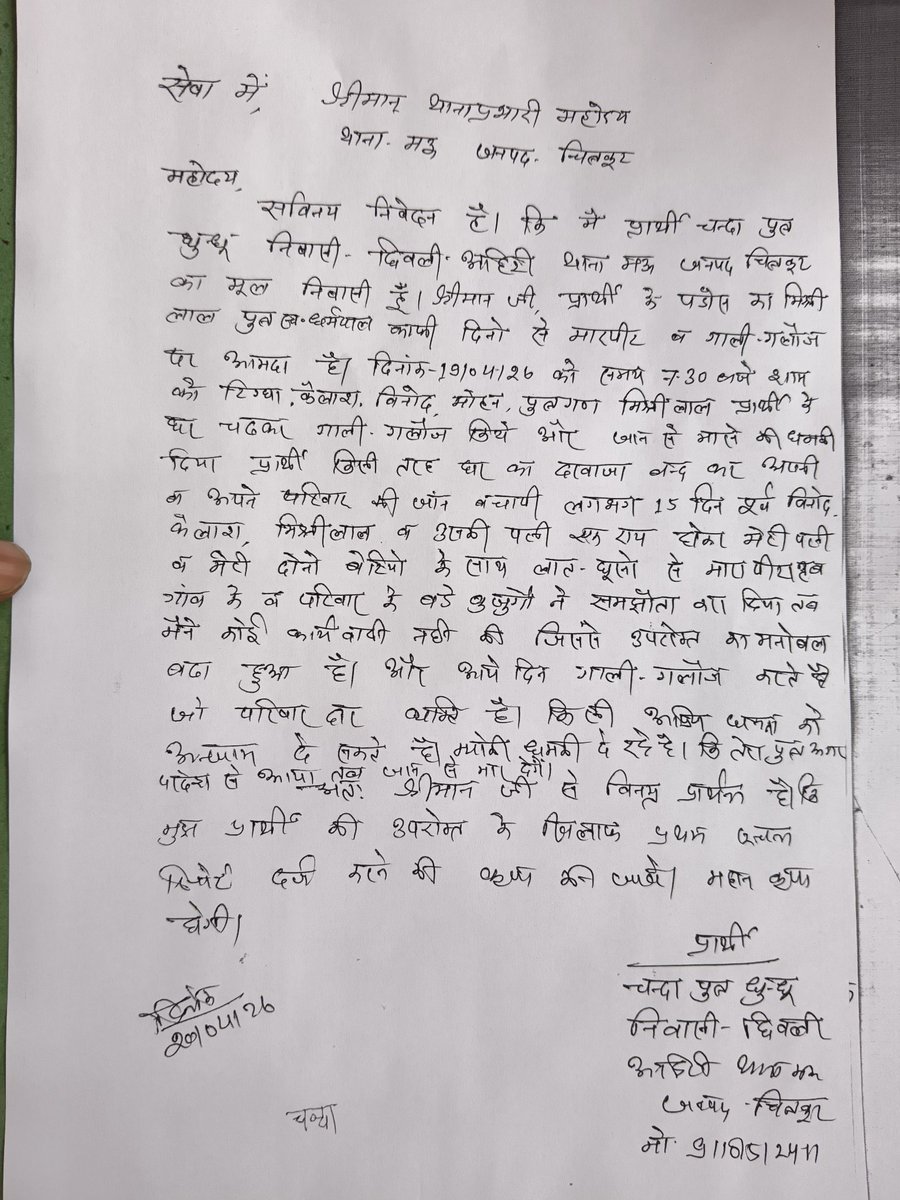 सेवा में, श्रीमान् थानाप्रभारी महोदय
थाना- मऊ जनपद- चित्रकूट
महोदय,
सविनय निवेदन है। कि मैं प्रार्थी चन्दा पुत्र
धुन्धू निवासी- छिवली- अहिरी थाना मऊ जनपद चित्रकूट
का मूल निवासी हूँ। श्रीमान जी, प्रार्थी के पडोस का मिश्री
लाल पुत्र स्व-धर्मपाल काफी दिनो से मारपीट व गाली-गलौज
पर आमदा है। दिनांक-19/04/26 को समय 7-30 बजे शाम
को कैलाश, विनोद, मोहन, पुत्रगण मिश्रीलाल प्रार्थी के
घर चढकर गाली-गलौज किये और जान से मारने की धमकी
दिया प्रार्थी किसी तरह घर का दरवाजा बन्द कर अपनी
व अपने परिवार की जाँन बचायी लगभग 15 दिन पूर्व विनोद,
कैलाश, मिश्रीलाल व उसकी पत्नी एक राय होकर मेरी पत्नी
व मेरी दोनो बेटियो के साथ लात-घूसो से मारपीट
गांव के व परिवार के बडे बुजुर्गो ने समझौता करा दिया तब
मैने कोई कार्यवाही नही की जिससे उपरोक्त का मनोबल
बढा हुआ है। और आये दिन गाली-गलौज करते है
जो परिवार है। किसी को
दे सकते है। क्योकी धमकी दे रहे है। कि तेरा पुत्र अगर
परदेश से आया तब जान से मार देगें।
अतः श्रीमान जी से विनम्र प्रार्थना है कि
मुझ प्रार्थी की उपरोक्त के खिलाफ प्रथम सूचना
रिपोर्ट दर्ज करने की कृपा की जावे। महान कृपा
होगी।
प्रार्थी
चन्दा पुत्र धुन्धू
निवासी- छिवली
अहिरी थाना मऊ
जनपद- चित्रकूट
मो०
दिनांक
20/04/26
चन्दा